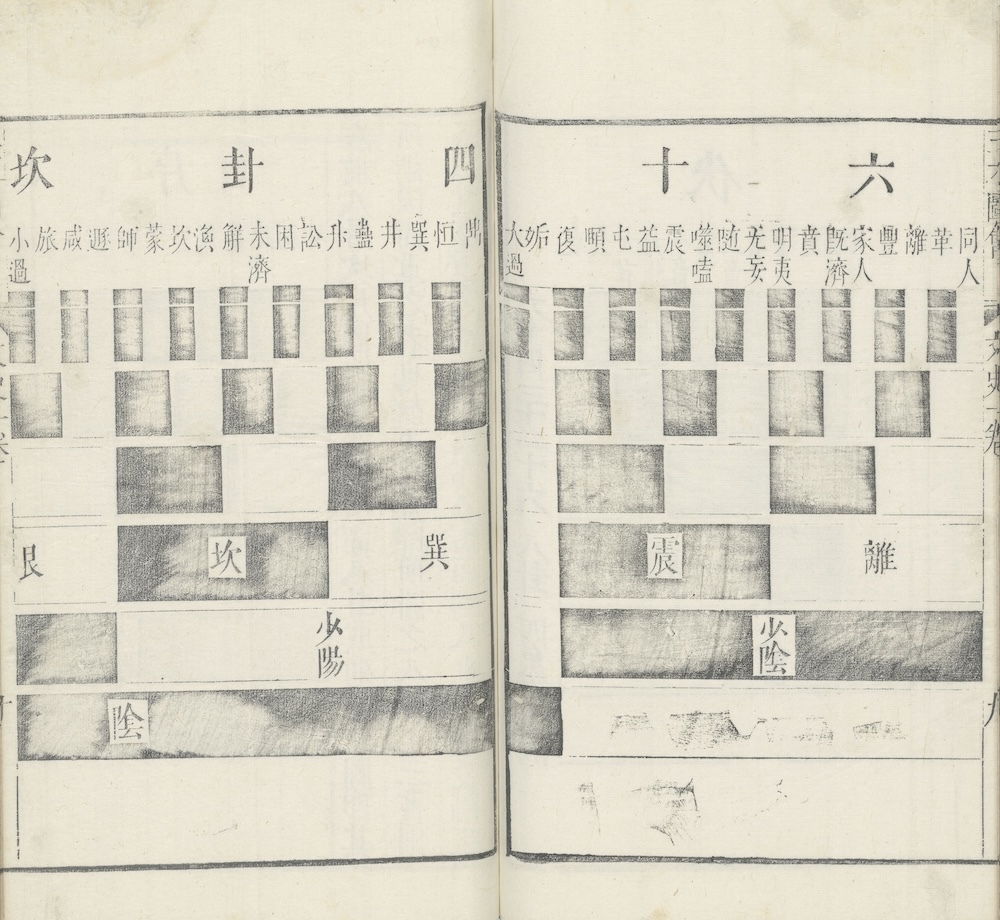 六十
同人 革 離 豐 家人 既濟 賁 明夷 无妄 随 噬嗑 震 益 屯 頤 復 姤 大過
離 震
少陰
四卦次
鼎 恒 巽 井 蠱 升 訟 困 未濟 解 渙 坎 蒙 師 遯 咸 旅 小過
巽 坎 艮
少陽
陰